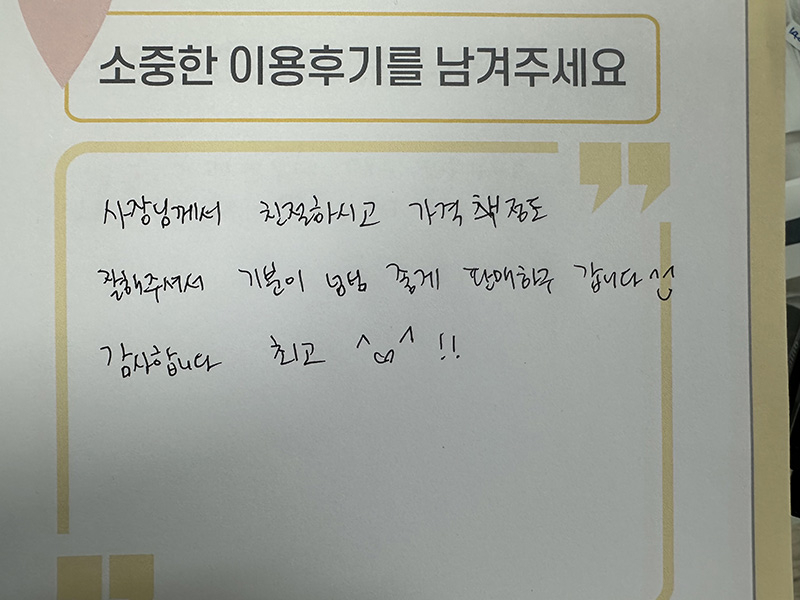 소중한 이용후기를 남겨주세요
사장님께서 친절하시고 가격 책정도
잘해주셔서 기분이 넘넘 좋게 판매하구 갑니다 ^^
감사합니다 최고 ^^ !!